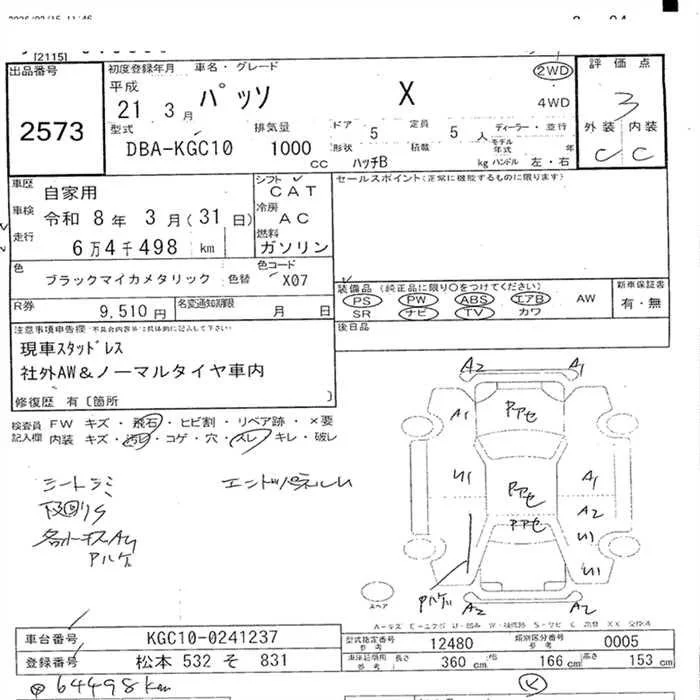 [2115]
出品番号
2573
初度登録年月 車名・グレード
平成
21 3月
パッソ X
2WD
4WD
評価点
3
外装 内装
C C
型式 DBA-KGC10
排気量 1000 CC
ドア 5 定員 5人
形状 ハッチB 積載 kg
ディーラー・並行
モデル年式 年
ハンドル 左・右
車歴 自家用
車検 令和 8年 3月(31日)
走行 6万4千498 km
シフト CAT
冷房 AC
燃料 ガソリン
セールスポイント(正常に機能するものに限ります)
色 ブラックマイカメタリック 色替
色コード X07
装備品 (純正品に限り○をつけてください)
PS PW ABS エアB AW
SR ナビ TV カワ
新車保証書
有・無
R券 9,510円
名変通知期限 月 日
後日品
注意事項申告欄
現車スタッドレス
社外AW&ノーマルタイヤ車内
修復歴 有〔箇所 〕
検査員 FW キズ・飛石・ヒビ割・リペア跡・×要
記入欄 内装 キズ・汚レ・コゲ・穴・スレ・キレ・破レ
シートシミ
A2 A1
A1
U1 A1
A2
U1
U1
A2 A2
スペア
車台番号 KGC10-0241237
登録番号 松本 532 そ 831
型式指定番号 12480 類別区分番号 0005
参考
長さ 360 cm 166 cm 高さ 153 cm
64498km